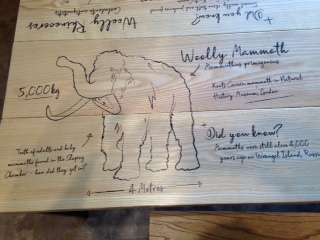 + Did you know?
Woolly Rhinoceros
Woolly Mammoth
Mammuthus primigenius
5,000kg
Kents Cavern mammoth in Natural
History Museum, London
Did you know?
Mammoths were still alive 4,000
years ago on Wrangel Island, Russia
Teeth of adults and baby
mammoths found in the Sloping
Chamber - how did they get in?
4 Metres